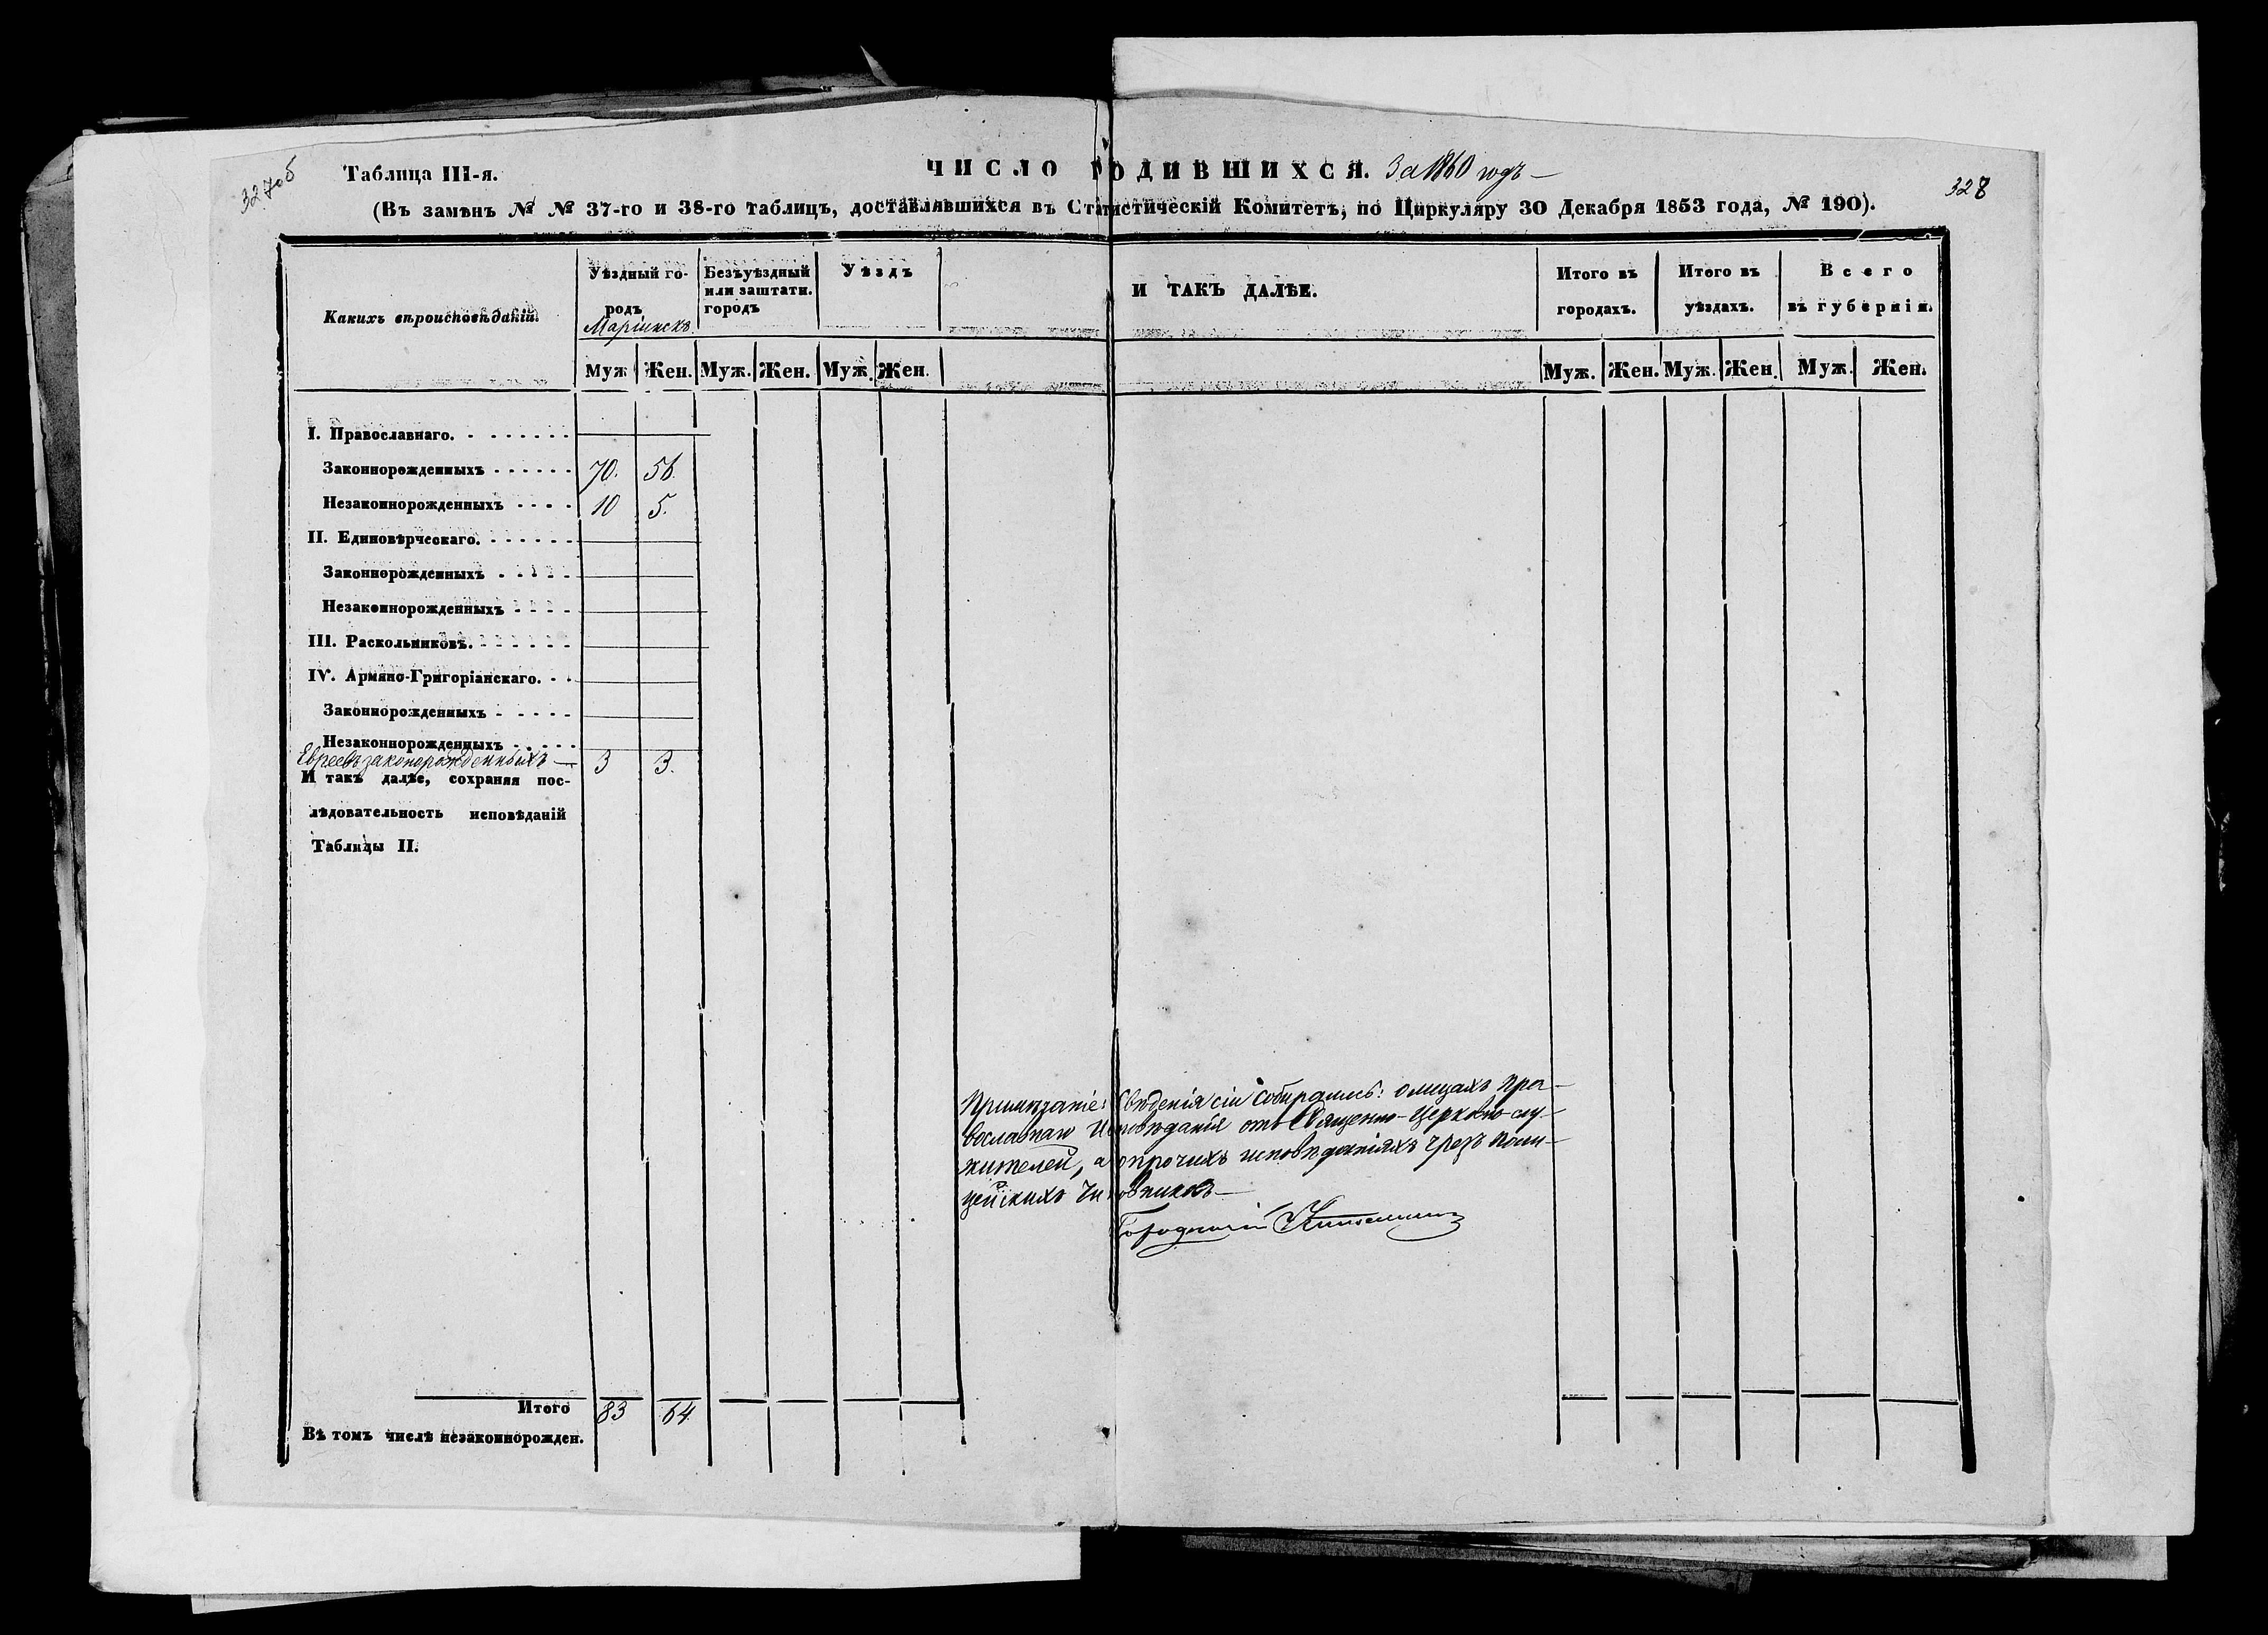 327об
328
Таблица III-я.
ЧИСЛО РОДИВШИХСЯ. За 1860 годъ —
(Въ замѣнъ № № 37-го и 38-го таблицъ, доставлявшихся въ Статистическій Комитетъ, по Циркуляру 30 Декабря 1853 года, № 190).
Какихъ вѣроисповѣданій.
Уѣздный го-
родъ
Маріинскъ
Безъуѣздный
или заштатн.
городъ
Уѣздъ
И ТАКЪ ДАЛѢЕ.
Итого въ
городахъ.
Итого въ
уѣздахъ.
Всего
въ губерніи.
Муж Жен. Муж. Жен. Муж. Жен. Муж. Жен. Муж. Жен. Муж. Жен.
I. Православнаго.
Законнорожденныхъ 70. 56.
Незаконнорожденныхъ 10 5.
II. Единовѣрческаго.
Законнорожденныхъ
Незаконнорожденныхъ
III. Раскольниковъ.
IV. Армяно-Григоріанскаго.
Законнорожденныхъ
Незаконнорожденныхъ
Евреевъ законорожденныхъ — 3 3.
И такъ далѣе, сохраняя пос-
лѣдовательность исповѣданій
Таблицы II.
Примѣчаніе: Свѣденія сіи собирались: о лицахъ пра-
вославнаго Исповѣданія отъ Священно-Церковно-слу-
жителей, а о прочихъ исповѣданіяхъ чрезъ поли-
цейскихъ чиновниковъ —
Городничій
Итого 83 64
Въ томъ числѣ незаконнорожден.